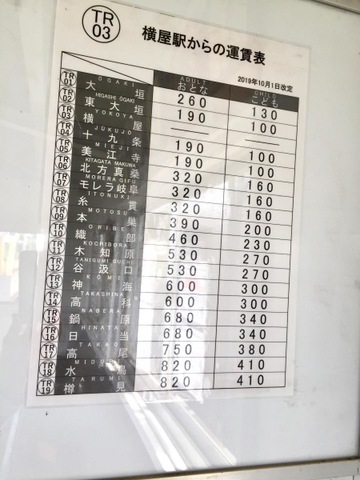 TR
03
横屋駅からの運賃表
2019年10月1日改定
ADULT
おとな
CHILD
こども
TR 01 OGAKI 大垣 260 130
TR 02 HIGASHI OGAKI 東大垣 190 100
TR 03 YOKOYA 横屋 — —
TR 04 JUKUJO 十九条 190 100
TR 05 MIEJI 美江寺 190 100
TR 06 KITAGATA MAKUWA 北方真桑 320 160
TR 07 MORERA GIFU モレラ岐阜 320 160
TR 08 ITONUKI 糸貫 320 160
TR 09 MOTOSU 本巣 390 200
TR 10 ORIBE 織部 460 230
TR 11 KOCHIBORA 木知原 530 270
TR 12 TANIGUMI GUCHI 谷汲口 530 270
TR 13 KOMI 神海 600 300
TR 14 TAKASHINA 高科 600 300
TR 15 NABERA 鍋原 680 340
TR 16 HINATA 日当 680 340
TR 17 TAKAO 高尾 750 380
TR 18 MIDORI 水鳥 820 410
TR 19 TARUMI 樽見 820 410